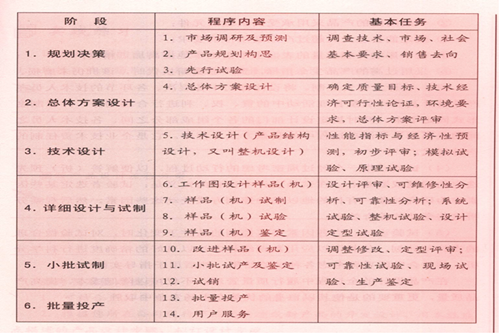 阶 段 程序内容 基本任务
1. 规划决策
1. 市场调研及预测
2. 产品规划构思
3. 先行试验
调查技术、市场、社会
基本要求、销售去向
2. 总体方案设计
4. 总体方案设计
确定质量目标、技术经
济可行性论证，环境要
求，总体方案评审
3. 技术设计
5. 技术设计（产品结构
设计，又叫整机设计）
性能指标与经济性预
测、初步评审；模拟试
验、原理试验
4. 详细设计与试制
6. 工作图设计样品(机)
7. 样品（机）试制
8. 样品（机）试验
9. 样品（机）鉴定
设计评审、可维修性分
析、可靠性分析；系统
试验、整机试验、设计
定型试验
5. 小批试制
10. 改进样品（机）
11. 小批试产及鉴定
12. 试销
调整修改、定型评审；
可靠性试验、现场试
验、生产鉴定
6. 批量投产
13. 批量投产
14. 用户服务